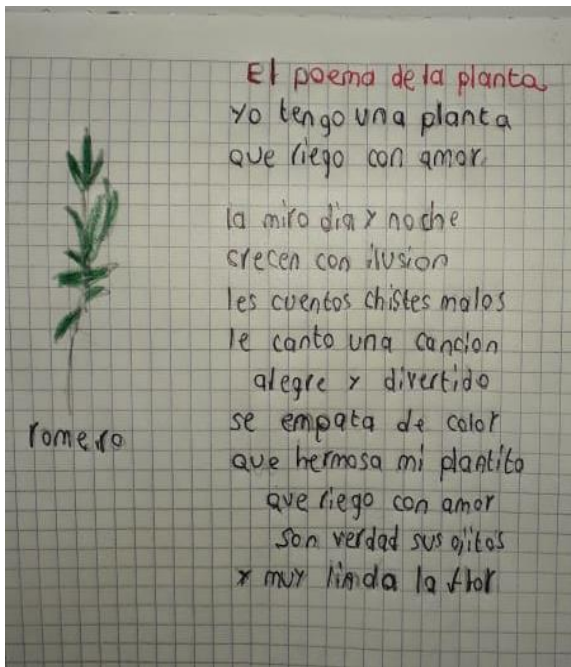 El poema de la planta
yo tengo una planta
que riego con amor.
la miro dia y noche
crecen con ilusion
les cuentos chistes malos
le canto una cancion
alegre y divertido
se empata de color
que hermosa mi plantita
que riego con amor
son verdad sus ojitos
y muy linda la flor
romero